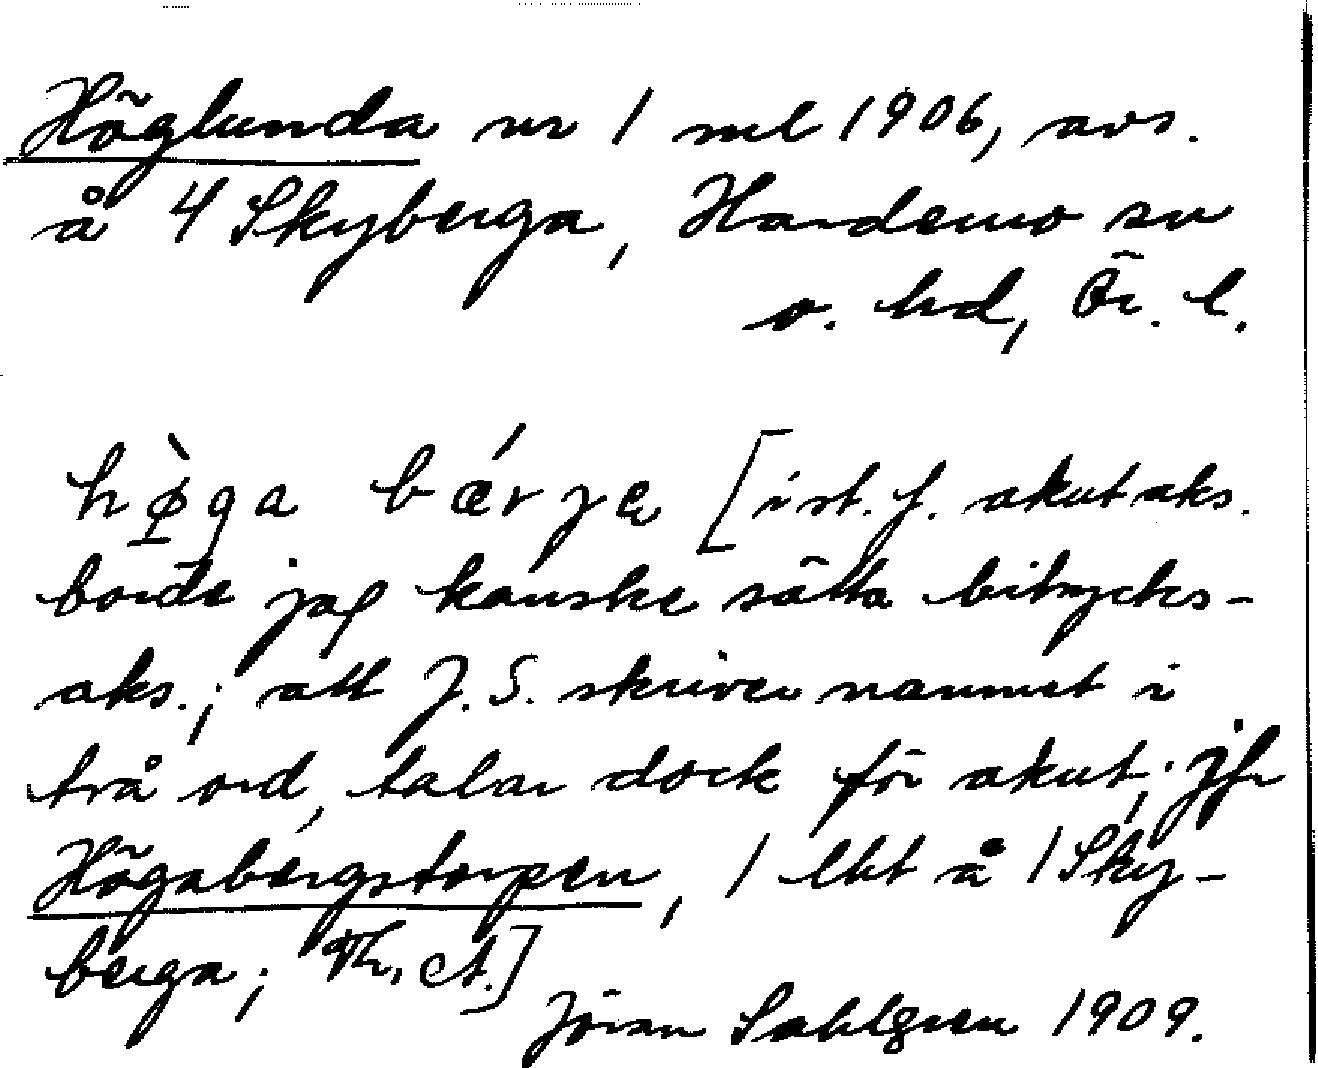 Höglunda nr 1 ml 1906, avs.
å 4 Skyberga, Hardemo sn
o. hd, Ör. l.
hø̀ga bǽrjɐ [i st. f. akut aks.
borde jag kanske sätta bitrycks-
aks.; att J. S. skriver namnet i
två ord, talar dock för akut; jfr
Högabergstorpen, 1 lht å 1 Sky-
berga; Th. ct.]
Jöran Sahlgren 1909.